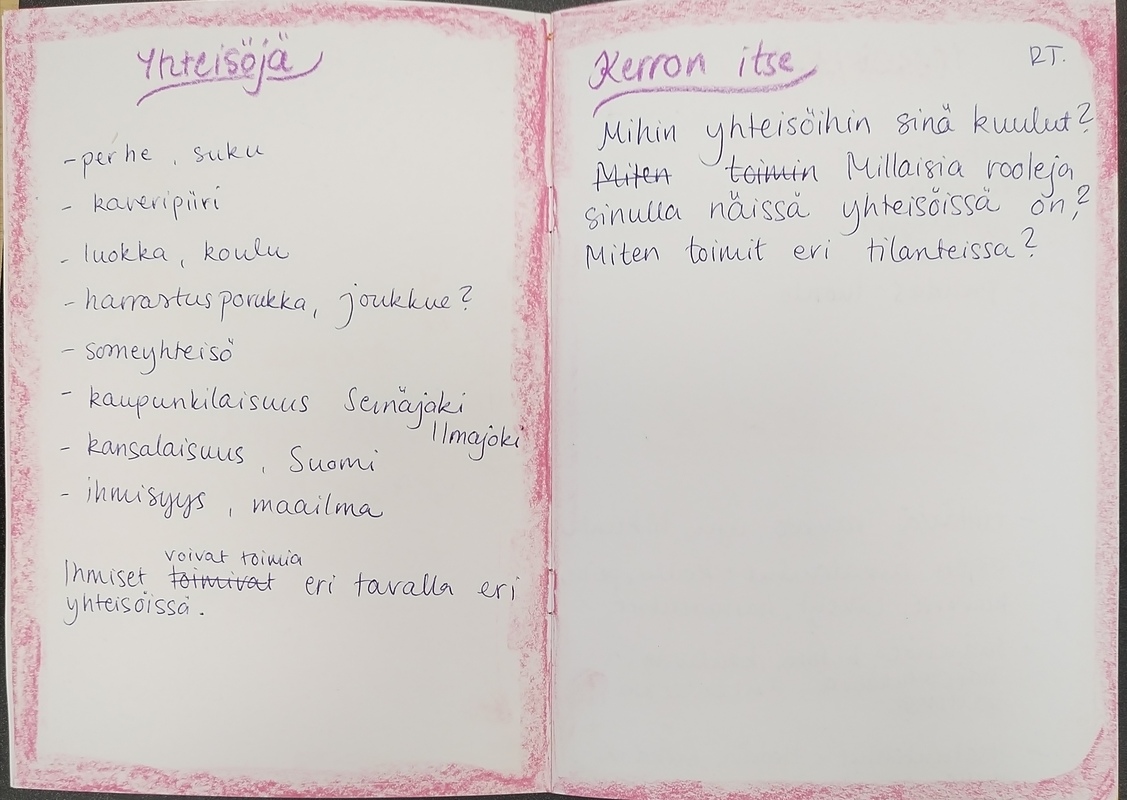 Yhteisöjä
- perhe, suku
- kaveripiiri
- luokka, koulu
- harrastusporukka, joukkue?
- someyhteisö
- kaupunkilaisuus Seinäjoki
Ilmajoki
- kansalaisuus, Suomi
- ihmisyys, maailma
voivat toimia
Ihmiset toimivat eri tavalla eri
yhteisöissä.
Kerron itse
RT.
Mihin yhteisöihin sinä kuulut?
Miten toimin Millaisia rooleja
sinulla näissä yhteisöissä on?
Miten toimit eri tilanteissa?